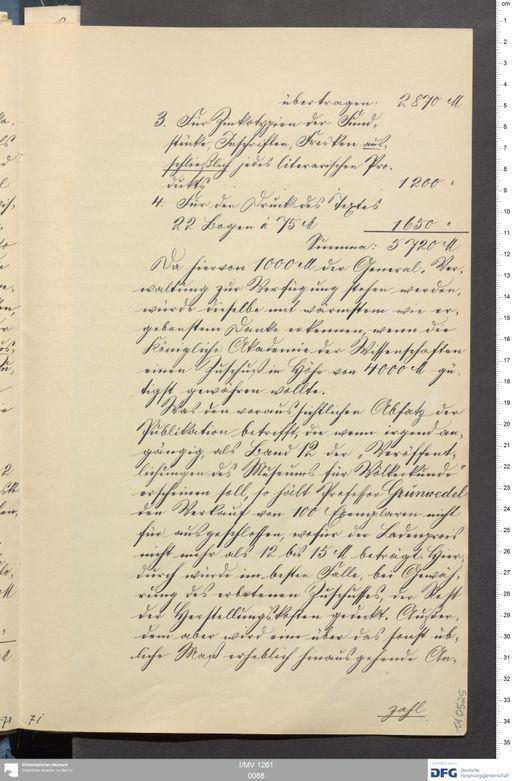 übertragen: 2870 M
3. Für Zinkotypien der Fund-
stücke, Inschriften, Fresken aus-
schließlich jedes literarischen Pro-
dukts 1200 "
4. Für den Druck des Textes
22 Bogen à 75 M 1650 "
Summa: 5720 M
Da hiervon 1000 M der General-Ver-
waltung zur Verfügung stehen werden,
würde dieselbe mit wärmstem wie er-
gebenstem Danke erkennen, wenn die
Königliche Akademie der Wissenschaften
einen Zuschuß in Höhe von 4000 M gü-
tigst gewähren wollte.
Was den voraussichtlichen Absatz der
Publikation betrifft, die wenn irgend an-
gängig als Band 12 der "Veröffent-
lichungen des Museums für Völkerkunde"
erscheinen soll, so hält Professor Grünwedel
den Verkauf von 100 Exemplaren nicht
für ausgeschlossen, wofür der Ladenpreis
nicht mehr als 12 bis 15 M beträgt. Hier-
durch würde im besten Falle, bei Gewäh-
rung des erbetenen Zuschusses, der Rest
der Herstellungskosten gedeckt. Außer-
dem aber wird eine über das sonst üb-
liche Maß erheblich hinausgehende An-
zahl
71
I/MV 1261
0088
Ethnologisches Museum
Staatliche Museen zu Berlin
DFG Deutsche
Forschungsgemeinschaft